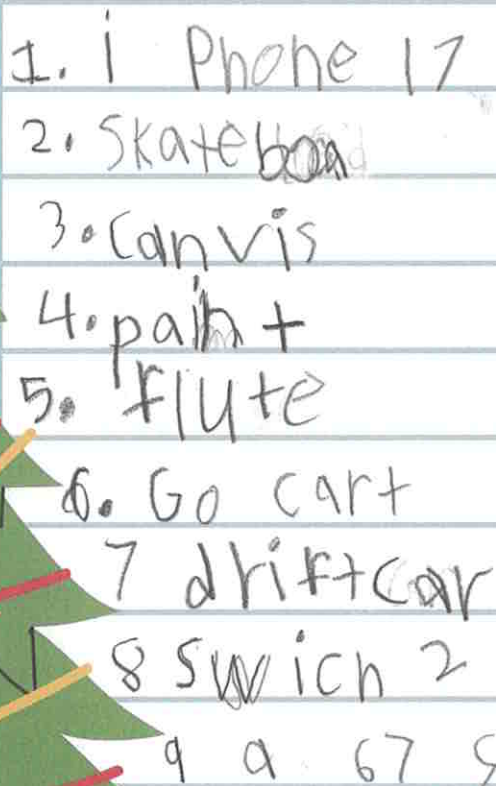 1. i Phone 17
2. Skateboa
3. Canvis
4. paint
5. flute
6. Go cart
7 driftcar
8 Swich 2
9 a 67